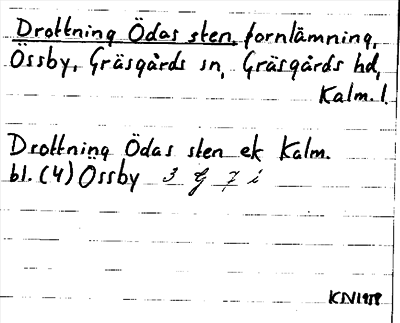 Drottning Ödas sten, fornlämning,
Össby, Gräsgårds sn, Gräsgårds hd,
Kalm. l.
Drottning Ödas sten ek Kalm.
bl. (4) Össby 3 G 7 i